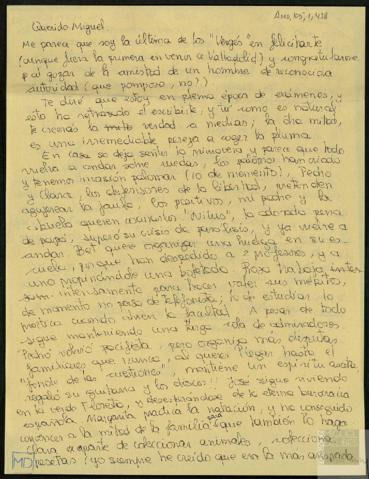 Querido Miguel
Me parece que soy la última de los "Vergés" en felicitarte
(aunque fuera la primera en venir a Valladolid) y congratularme
p al gozar de la amistad de un hombre de reconocida
autoridad (que pomposo, no?)
Te diré que estoy en plena época de exámenes, y
esto ha retrasado el escribirte, y tu como es natural
te creerás la verdad a medias; la otra mitad,
es una irremediable pereza a coger la pluma.
En casa se deja sentir la primavera y parece que todo
vuelva a andar sobre ruedas, las palomas han criado
y tenemos invasión palomar (10 de momento), Pedro
y Clara, los defensores de la libertad, pretenden
agujerear la jaula, los positivos, mi padre y la
abuela quieren comérselos. "Nilus", la adorada perra
de papá, superó su crisis de parálisis, y ya vuelve a
andar. Bet quiere organizar una huelga en su es-
cuela, porque han despedido a 2 profesores, y a
uno propinándole una bofetada. Rosa trabaja inten-
samente para hacer valer sus méritos,
de momento no pasa de telefonista; lo de estudiar lo
practica cuando abren la facultad. A pesar de todo
sigue manteniendo una larga cola de admiradores.
Pedro volvió pacifista, pero organiza más disputas
familiares que nunca, al querer llegar hasta el
"fondo de las cuestiones", mantiene un espíritu
regaló su guitarra y los discos!! José sigue viviendo
en la verde Floresta, y desesperándose de la eterna burocracia
española. Margarita practica la natación, y ha conseguido
convencer a la mitad de la familia para que también lo haga
Clara aparte de coleccionar animales, colecciona
pesetas (yo siempre he creído que era la más avispada
MD